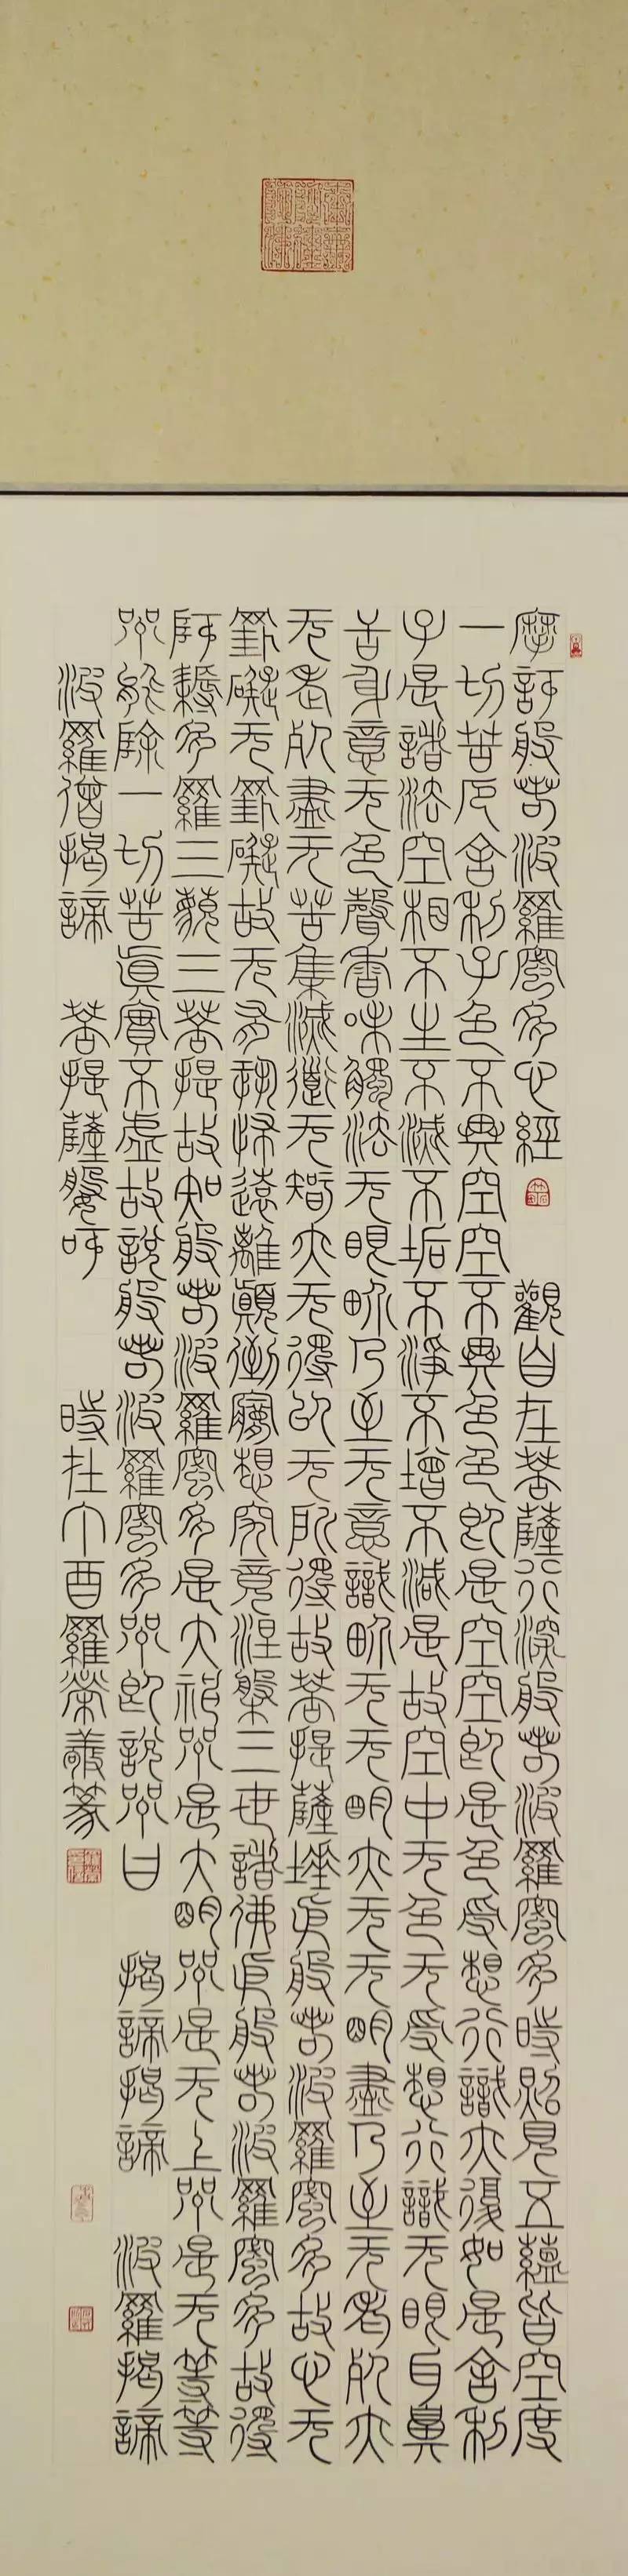 摩訶般若波羅蜜多心經 觀自在菩薩行深般若波羅蜜多時照見五蘊皆空度
一切苦厄舍利子色不異空空不異色色即是空空即是色受想行識亦復如是舍利
子是諸法空相不生不滅不垢不淨不增不減是故空中无色无受想行識无眼耳鼻
舌身意无色聲香味觸法无眼界乃至无意識界无无明亦无无明盡乃至无老死亦
无老死盡无苦集滅道无智亦无得以无所得故菩提薩埵依般若波羅蜜多故心无
罣礙无罣礙故无有恐怖遠離顛倒夢想究竟涅槃三世諸佛依般若波羅蜜多故得
阿耨多羅三藐三菩提故知般若波羅蜜多是大神咒是大明咒是无上咒是无等等
咒能除一切苦真實不虛故說般若波羅蜜多咒即說咒曰 揭諦揭諦 波羅揭諦
波羅僧揭諦 菩提薩婆訶 時在丁酉羅榮義篆